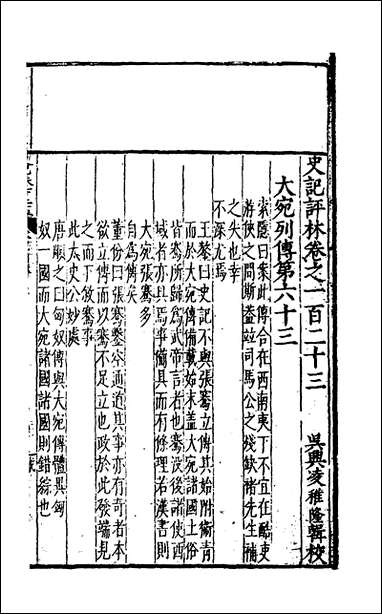 史記評林卷之一百二十三
吳興凌稚隆輯校
大宛列傳第六十三
索隱曰案此傳合在西南夷下不宜在酷吏
游俠之間斯蓋竝司馬公之殘缺褚先生補
之失也幸不深尤焉
王鏊曰史記不與張騫立傳其始附衛青
而於大宛傳備載始末蓋大宛諸國土俗
皆騫所歸為武帝言者也騫沒後諸使西
域者亦具焉事備具而有條理若漢書則
大宛張騫各自為傳矣
董份曰張騫鑿空通道其事亦有奇者本
欲立傳而以騫不足立也故於此發端見
之而下敘騫事
此太史公妙處
唐順之曰匈奴傳與大宛傳體異匈
奴一國而大宛諸國諸國則錯綜也